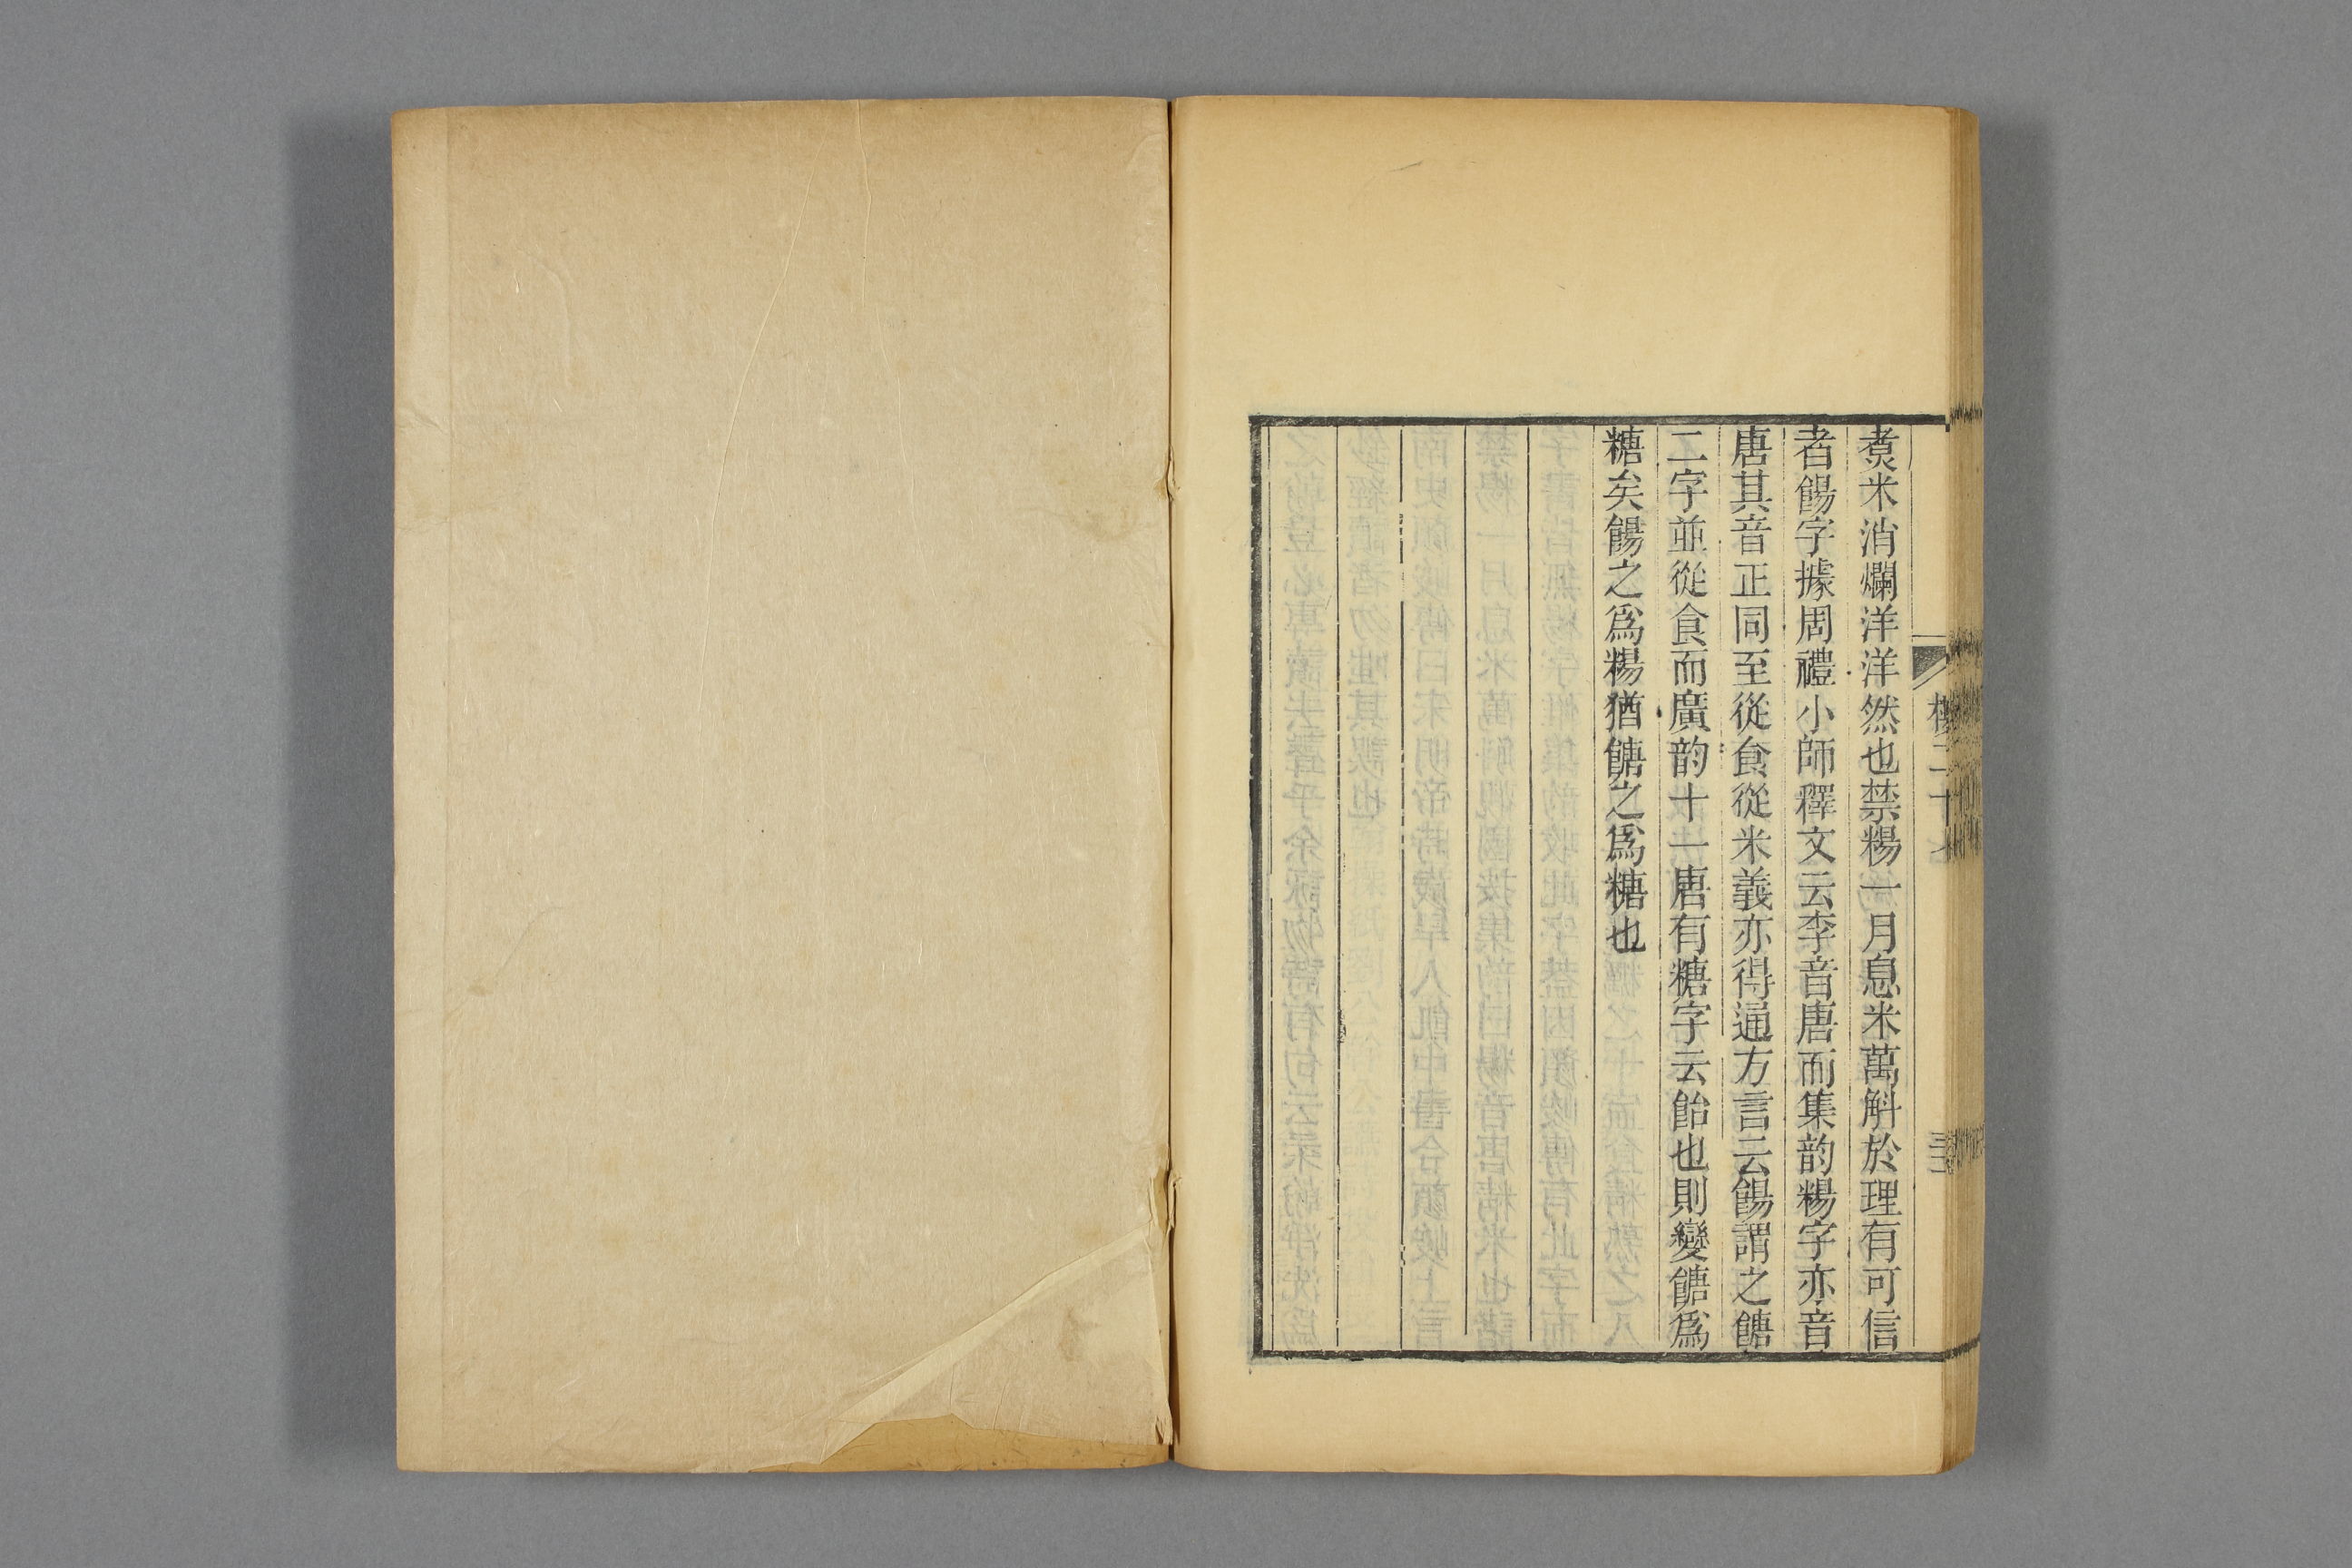 煑米消爛洋洋然也禁糃一月息米萬斛於理有可信
者餳字據周禮小師釋文云李音唐而集韵糃字亦音
唐其音正同至從食從米義亦得通方言云餳謂之餹
二字並從食而廣韵十一唐有糖字云飴也則變餹爲
糖矣餳之爲糃猶餹之爲糖也